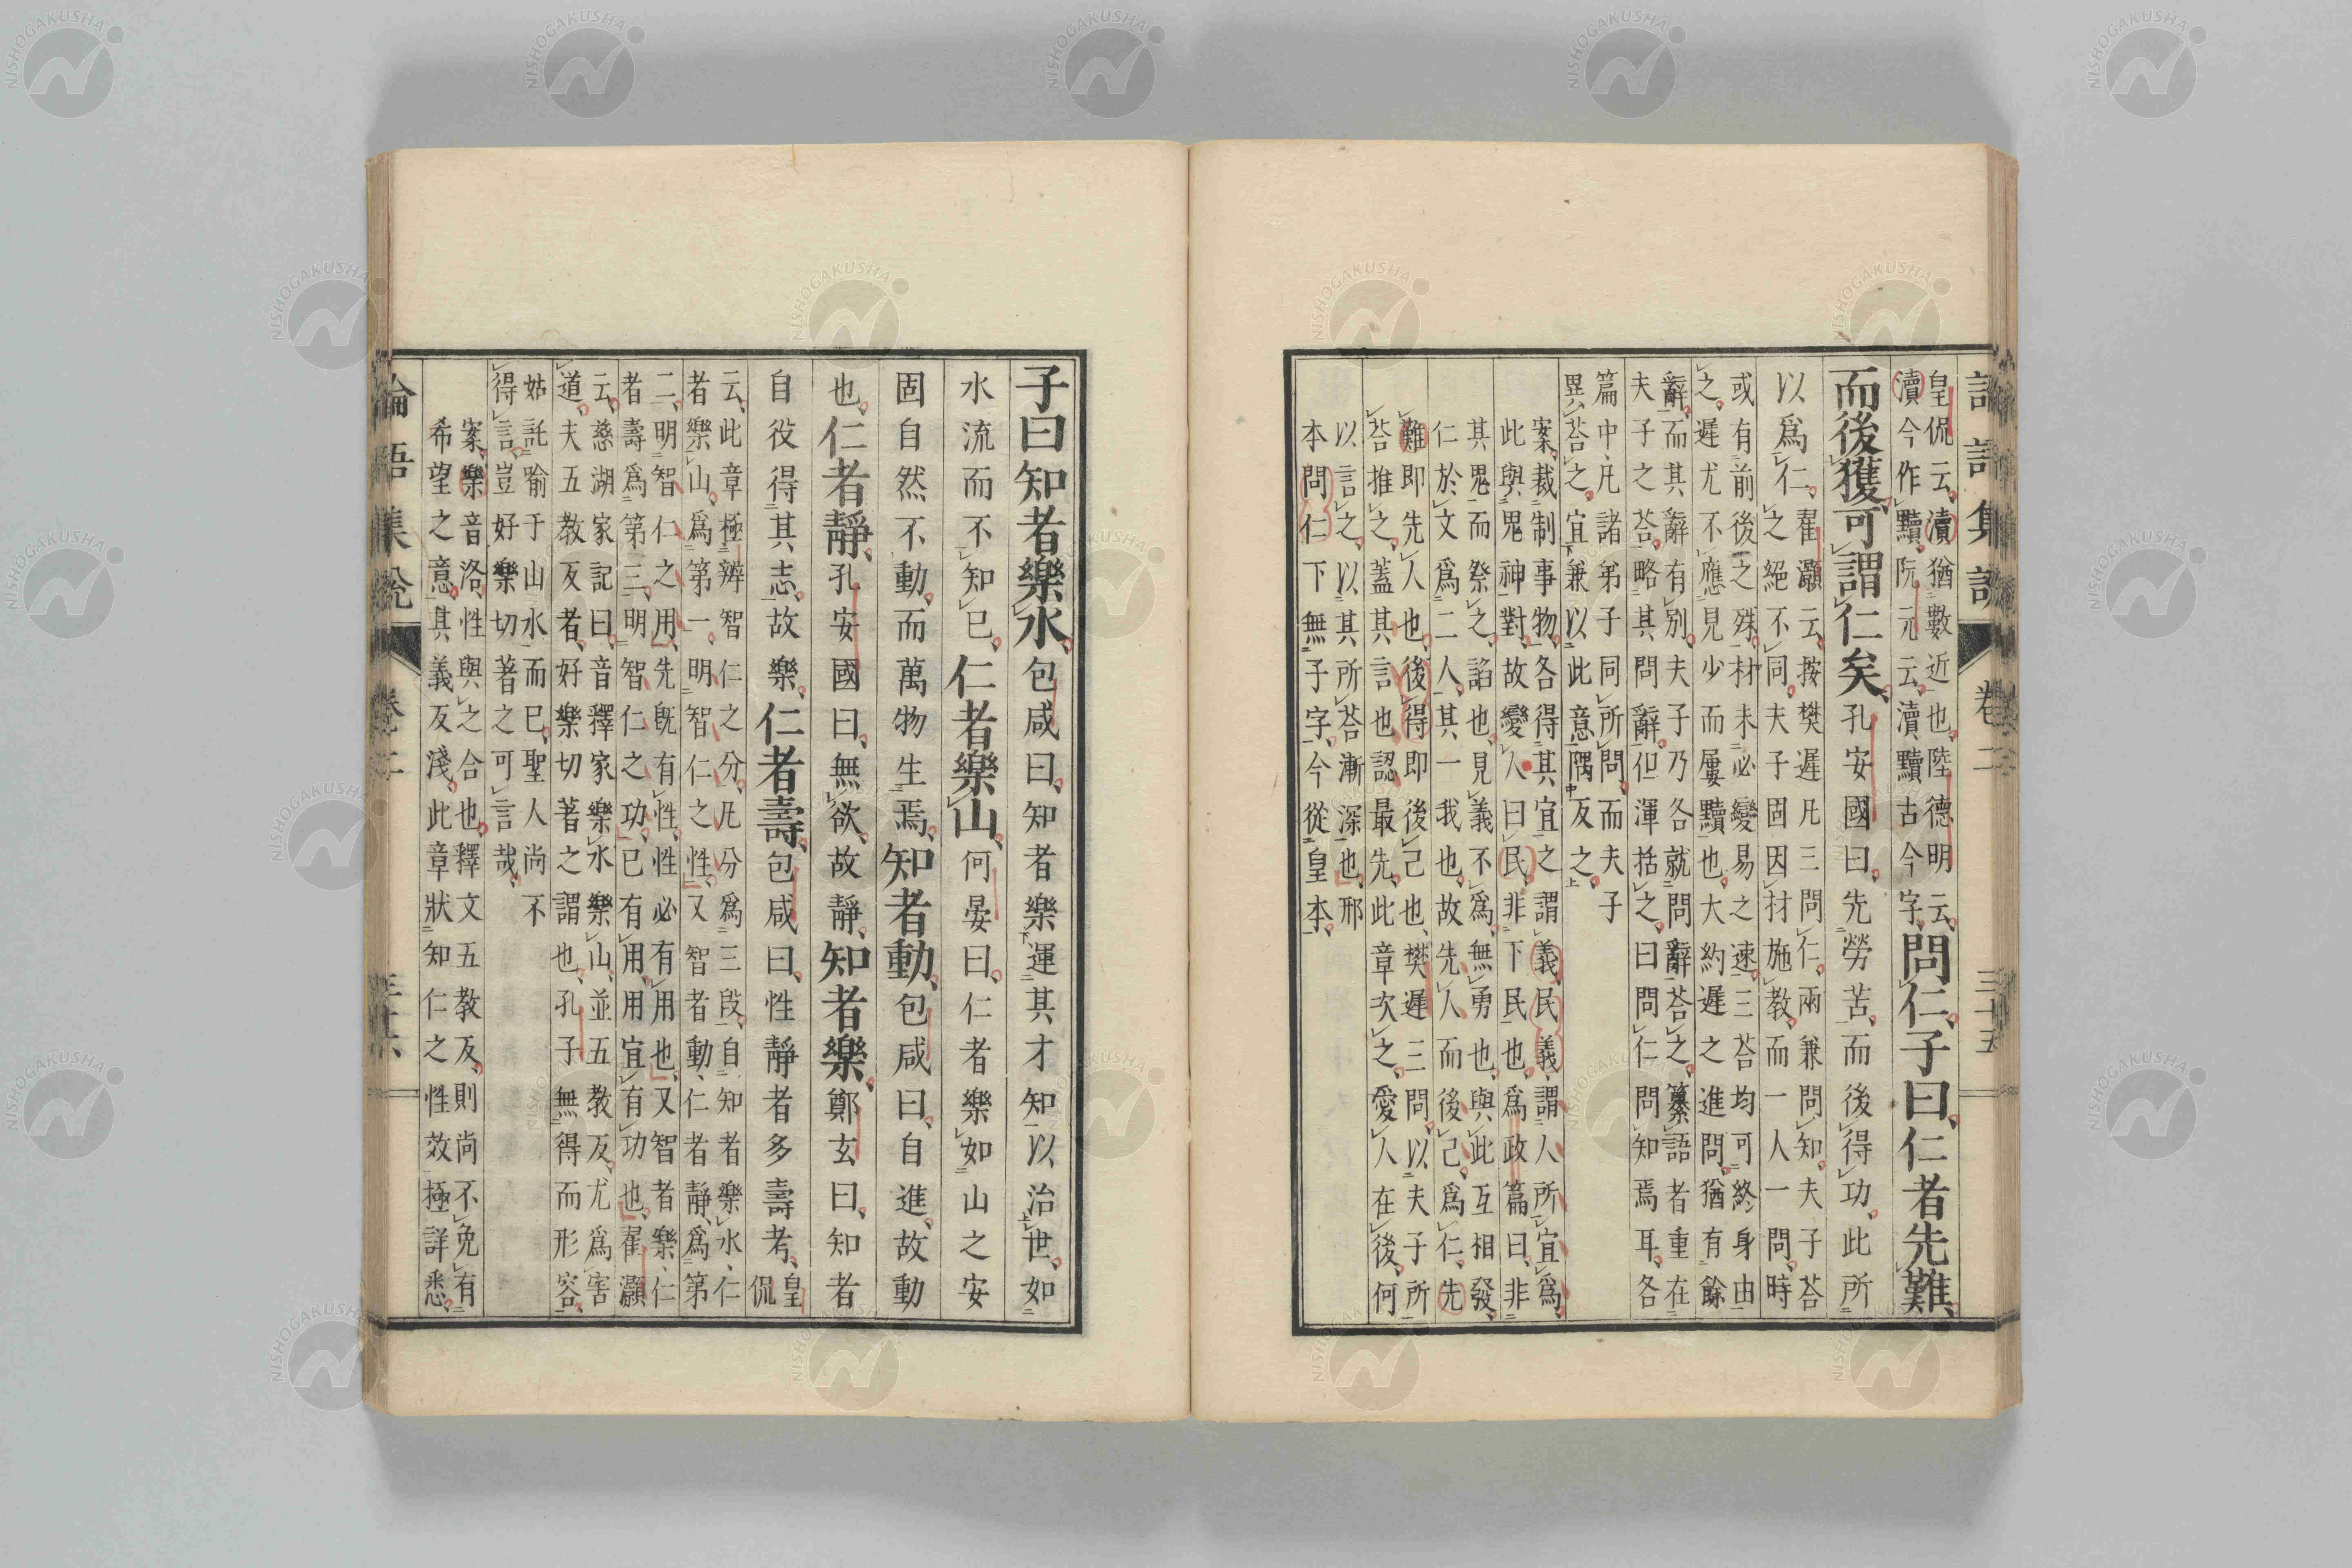 論語集說 卷二 三十五
皇侃云、瀆猶數近也、陸德明云、
瀆今作黷、阮元云、瀆黷古今字、
問仁、子曰、仁者先難、
而後獲、可謂仁矣、孔安國曰、先勞苦、而後得功、此所
以爲仁、
翟灝云、按樊遲凡三問仁、兩兼問知、夫子荅
之絕不同、夫子固因材施教、而一人一問、時
或有前後之殊、材未必變易之速、三荅均可終身由
之、遲尤不應見少而屢黷也、大約遲之進問、猶有餘
辭、而其辭有別、夫子乃各就問辭荅之、纂語者重在
夫子之荅、略其問辭、但渾括之、曰問仁問知焉耳、各
篇中、凡諸弟子同所問、而夫子
異荅之、宜兼以此意隅反之、
案、裁制事物、各得其宜之謂義、民義、謂人所宜爲、
此與鬼神對、故變人曰民、非下民也、爲政篇曰、非
其鬼而祭之、諂也、見義不爲、無勇也、與此互相發、
仁於文爲二人、其一我也、故先人而後己、爲仁、先
難即先人也、後得即後己也、樊遲三問、以夫子所
荅推之、蓋其言也認最先、此章次之、愛人在後、何
以言之、以其所荅漸深也、邢
本問仁下無子字、今從皇本、
子曰、知者樂水、包咸曰、知者樂運其才知以治世、如
水流而不知已、仁者樂山、何晏曰、仁者樂如山之安
固自然不動、而萬物生焉、知者動、包咸曰、自進、故動
也、仁者靜、孔安國曰、無欲、故靜、知者樂、鄭玄曰、知者
自役得其志、故樂、仁者壽、包咸曰、性靜者多壽考、
皇
侃
云、此章極辨智仁之分、凡分爲三段、自知者樂水、仁
者樂山、爲第一、明智仁之性、又智者動、仁者靜、爲第
二、明智仁之用、先既有性、性必有用也、又智者樂、仁
者壽爲第三、明智仁之功、已有用、用宜有功也、翟灝
云、慈湖家記曰、音釋家樂水樂山、並五教反、尤爲害
道、夫五教反者、好樂切著之謂也、孔子無得而形容、
姑託喻于山水而已、聖人尚不
得言、豈好樂切著之可言哉、
案、樂音洛、性與之合也、釋文五教反、則尚不免有
希望之意、其義反淺、此章狀知仁之性效極詳悉、
論語集說 卷二 三十六
NISHOGAKUSHA